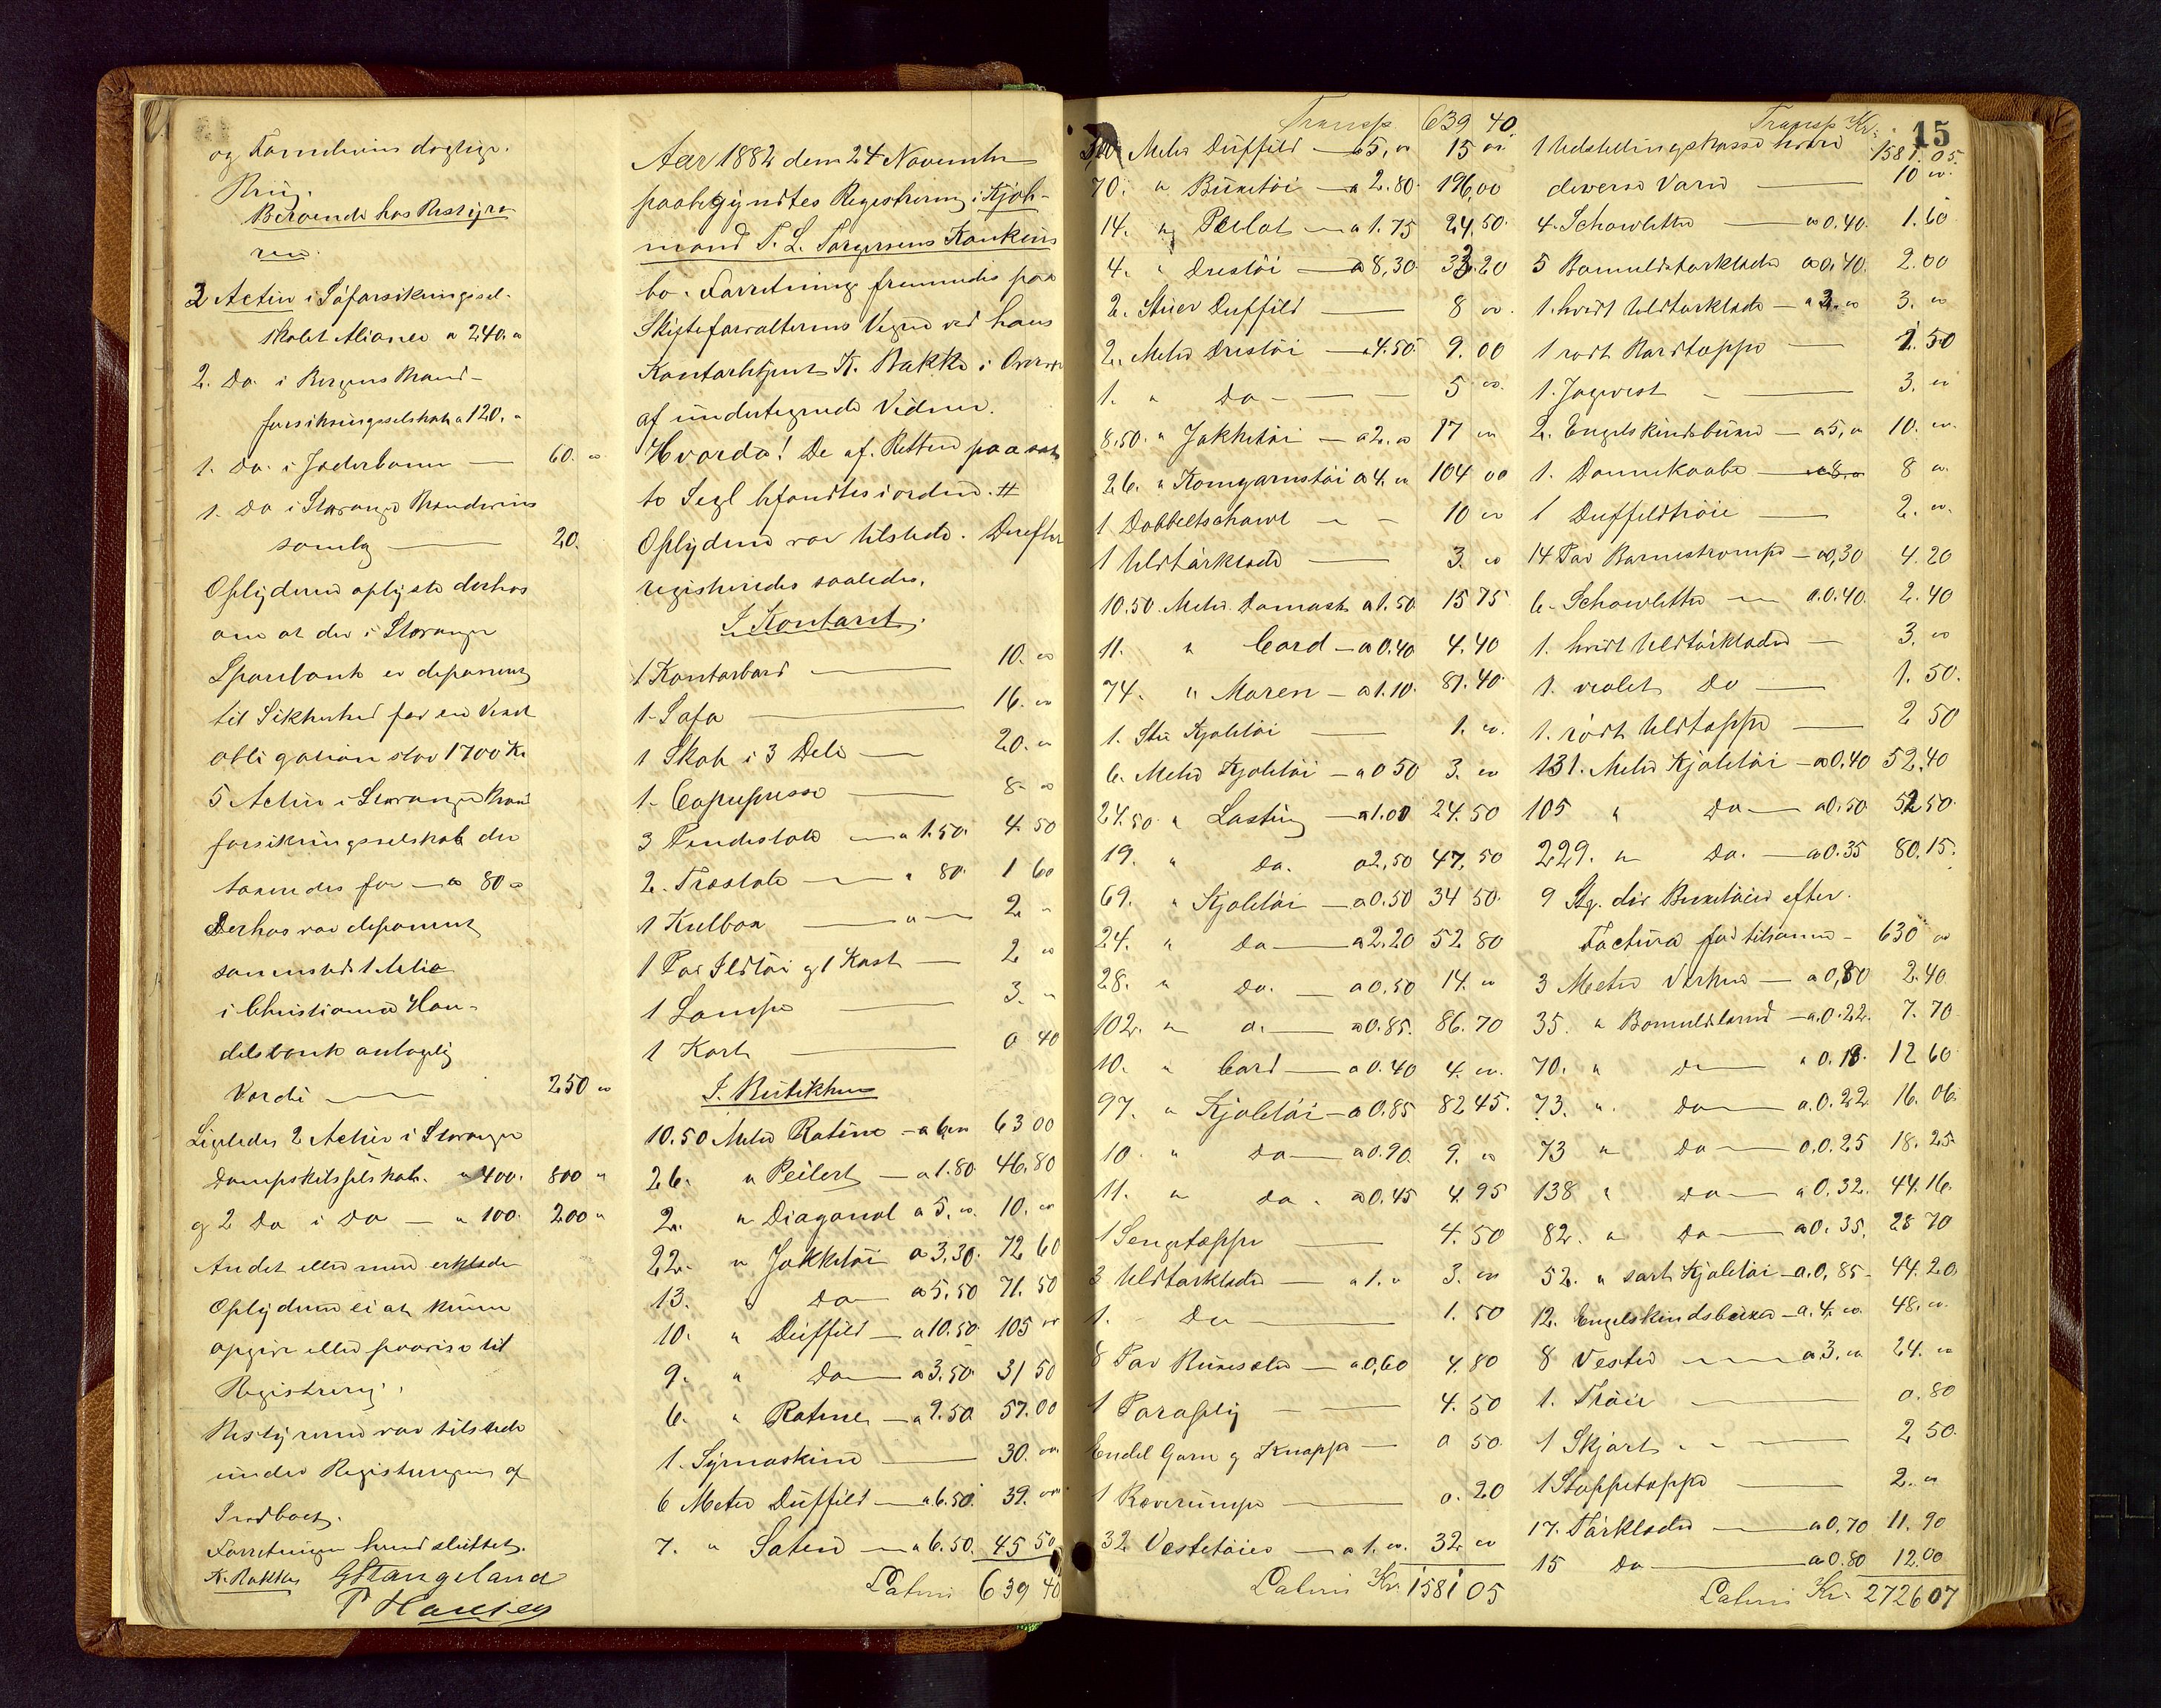 og Familiens daglige
Brug.
Beroende hos Bestyre-
ren.
3 Actier i Søforsikringssel-
skabet Aliance a 240. "
2. Do. i Bergens Brand-
forsikringsselskab a 120. "
1. Do. i Jæderbanen — 60. "
1. Do i Stavanger
— 20.
Opbyderne oplyste derhos
om at der i Stavanger
Sparebank er deponeret
til Sikkerhed for en
obligation stor 1700 Kr
5 Actier i Stavanger Brand
forsikringsselskab der
taxeredes for — a 80 "
Derhos var deponeret
sammesteds 1 Actie
i Christiania Han-
delsbank antagelig
Værdi — 250 "
Ligeledes 2 Actier i Stavanger
Dampskibsselskab. a 400. 800 "
og 2 Do i Do — a 100. 200 "
Andet eller mere erklærede
Opbyderne ei at kunne
opgive eller paavise til
Registrering.
Bestyreren var tilstede
under Registreringen af
Indboet.
Forretningen hermed sluttet.
K. Bakke G Stangeland
P Hansen
Aar 1882 den 24 November
paabegyndtes Registrering i Kjøb-
mand T. L. Torgersens Konkurs
bo. Forretning fremmedes paa
Skifteforvalterens Vegne ved hans
Kontorbetjent K. Bakke i Overvær
af undertegnede Vidner.
Hvorda! De af Retten paasat-
te Segl befandtes i orden. #
Opbyderne var tilstede. Derefter
registreredes saaledes.
I Kontoret.
1 Kontorbord — 10. "
1. Sofa — 16. "
1 Skab i 3 Dele — 20. "
1. Copupresse — 8 "
3 Pindestole — a 1.50. 4.50
2. Træstole — a 80. 1 60
1 Kulbox — " — 2 "
1 Par Ildtøi og 1 Kost — 2 "
1 Lampe — 3. "
1 Kort — 0 40
I. Butikken
10.50 Meter Ratine — a 6 " 63 00
26. " Peilert — a 1.80. 46.80
2. " Diagonal a 5. " 10. "
22. " Jakketøi a 3,30. 72 60
13. " Do — a 5,50 71.50
10. " Düffild — a 10.50 105 "
9. " Do — a 3.50 31 50
6. " Ratine — a 9.50 57.00
1. Symaskine — 30. "
6 Meter Düffild — a 6.50. 39. "
7. " Satin — a 6.50. 45 50
Latus 639 40
15
Transp 639 40.
3,00 Meter Düffild — a 5, " 15 "
70. " Buxetøi — a 2.80. 196,00
14. " Peilot — a 1.75 24,50.
4. " Drestøi — a 8,30. 33.20
2. Stüer Duffild — 8 "
2. Meter Drestøi — a 4.50. 9.00
1. " Do — 5 "
8.50. " Jakketøi — a 2. " 17 "
26. " Komgarnstøi a 4. " 104 00
1 Dobbeltschawl — 10 "
1 Uldtørklæde — 3. "
10.50. Meter Damask a 1.50. 15 75
11. " Cord — a 0.40 4.40
74. " Moren — a 1.10. 81.40
1. Stü Kjoletøi — 1. "
6. Meter Kjoletøi — a 0 50 3. "
24.50 " Lasting — a 1.00 24.50
19. " Do. a 2,50 47,50
69. " Kjoletøi — a 0.50 34 50.
24. " Do — a 2.20 52 80
28. " Do. — a 0.50 14. "
102. " " — a 0.85. 86.70
10. " Cord — a 0.40 4. "
97. " Kjoletøi — a 0.85 82 45.
10. " Do — a 0.90. 9. "
11. " Do. a 0.45 4.95
1 Sengetæppe — 4.50
3 Uldtørklæder — a 1. " 3. "
1. Do — 1.50
8 Par Buxesæler — a 0,60 4.80
1 Paraply — 4.50
Endel Garn og Knapper — 0 50.
1 Ræverumpe — 0.20
32 Vestetøier — a 1. " 32 "
Latus Kr. 1581 05
Transp Kr. 1581.05.
1 Udstillingskasse hvori
diverse Varer — 10 "
4. Schawletter — a 0.40. 1.60
5 Bomuldstørklæder a 0,40. 2.00
1. hvidt Uldtørklæde — a 3. " 3. "
1 rødt Bordtæppe — 1.50
1. Jagvest — 3. "
2. Engelskindsbüxer — a 5, " 10. "
1. Damekaabe — a 8. " 8 "
1 Duffeldtrøie — 2. "
14 Par Barnestrømper — a 0,30 4.20
6. Schawletter — a. 0.40. 2.40
1. hvidt Uldtørklæde — 3. "
1. violet Do — 1.50.
1. rødt Uldtæppe — 2 50
131. Meter Kjoletøi — a 0.40 52.40
105 " Do — a 0.50. 52 50.
229. " Do. — a 0.35 80.15.
9 Stp. div Buxetøier efter
Factura fortilsammen — 630 "
3 Meter Værken — a 0,80 2.40
35. " Bomuldslærred — a. 0.22. 7.70
70. " D — a 0.18. 12 60
73. " Do — a. 0.22. 16.06.
73 " Do — a. 0.25 18.25
138 " Do — a 0.32. 44.16.
82. " Do — a 0.35, 28 70
52. " sort Kjoletøi — a. 0,85 — 44.20.
12. Engelskindsbuxer — a. 4. " 48. "
8 Vester — a 3. " 24. "
1. Trøie — 0.80
1 Skjørt — 2 50.
1 Stoppetæppe — 2. "
17. Tørklæder — a 0,70 11.90
15 Do — a 0.80 12.00
Latus Kr. 2726 07